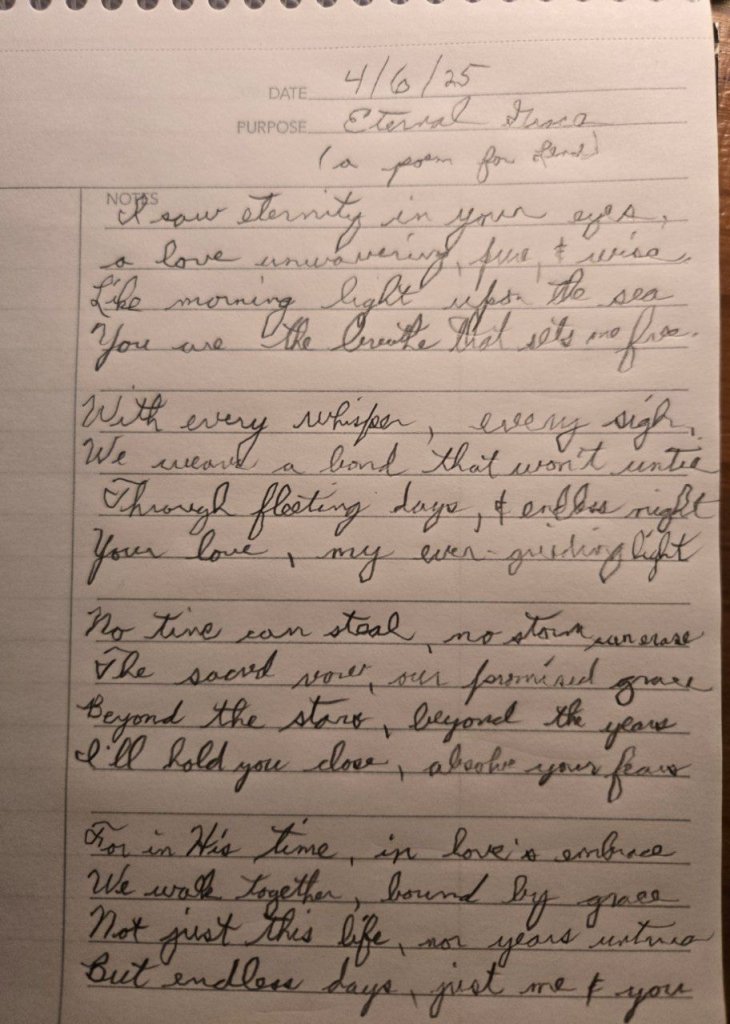 DATE 4/6/25
PURPOSE Eternal Grace
(a poem for
NOTES
I saw eternity in your eyes,
a love unwavering, pure, & wise.
Like morning light upon the sea
You are the breathe that sets me free.
With every whisper, every sigh,
We weave a bond that won't untie
Through fleeting days, & endless night
Your love, my ever-guiding light
No time can steal, no storm can erase
The sacred vows, our promised grace
Beyond the stars, beyond the years
I'll hold you close, absolve your fears
For in His time, in love's embrace
We walk together, bound by grace
Not just this life, nor years untrue
But endless days, just me & you